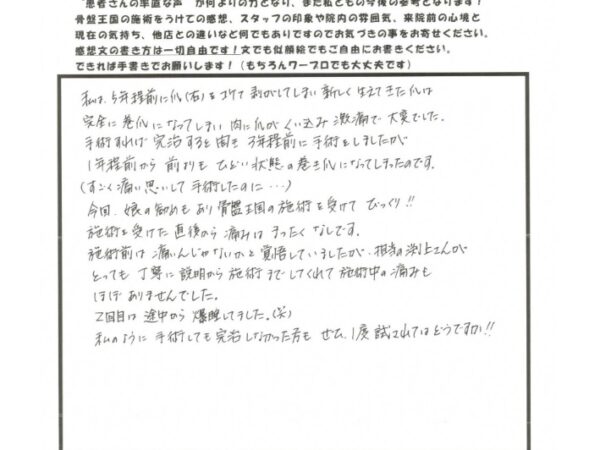 "患者さんの率直な声"が何よりの力となり、また私どもの今後の参考となります!
骨盤王国の施術をうけての感想、スタッフの印象や院内の雰囲気、来院前の心境と
現在の気持ち、他店との違いなど何でもありですのでお気づきの事をお寄せください。
感想文の書き方は一切自由です!文でも似顔絵でもご自由にお書きください。
できれば手書きでお願いします!(もちろんワープロでも大丈夫です)
私は、5年程前に爪(右)をコケて剥がしてしまい新しく生えてきた爪は
完全に巻爪になってしまい肉に爪がくい込み激痛で大変でした。
手術すれば完治すると聞き3年程前に手術をしましたが
1年程前から前よりもひどい状態の巻き爪になってしまったのです。
(すごく痛い思いして手術したのに…)
今回、娘の勧めもあり骨盤王国の施術を受けてびっくり!!
施術を受けた直後から痛みはまったくなしです。
施術前は痛いんじゃないかと覚悟していましたが、担当の渕上さんが
とっても丁寧に説明から施術までしてくれて施術中の痛みも
ほぼありませんでした。
2回目は途中から爆睡してました。(笑)
私のように手術しても完治しなかった方もぜひ、1度試されてはどうですか!!